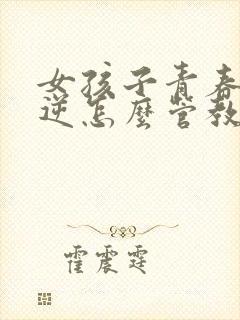 女孩子青春
逆怎麼管教
霍震霆